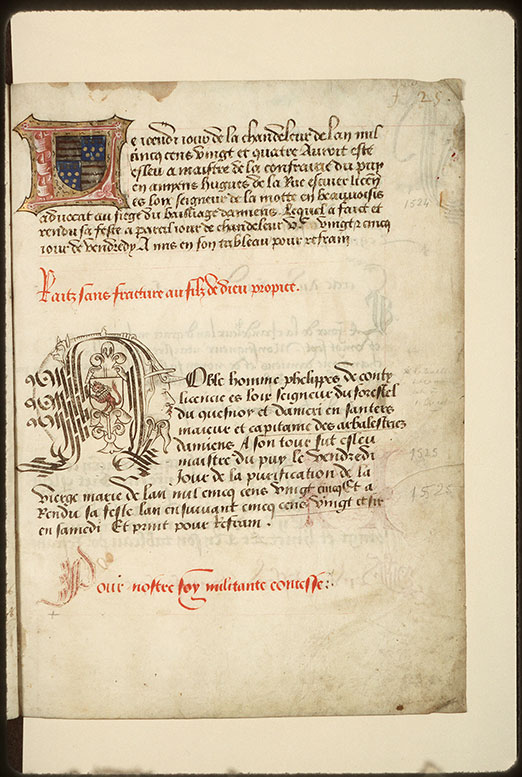 25.
Le vendr iour de la chandeleur de lan mil
cincq cens vingt et quatre Auroit esté
esleu a maistre de la confrairie du puy
en amiens hugues de la Rue escuier licen
es loix seigneur de la motte en beauvoisis
advocat au siege du bailliage damiens. Lequel a faict et
rendu sa feste a pareil iour de chandeleur vc vingt cincq
iour de vendredy A mis en son tableau pour refrain
1524
Vaitz sans fracture au filz de dieu propice.
Noble homme phelippes de conty
licencie es loix seigneur du forestel
du quesnoy et dameri en santers
maieur et capitaine des arbalestries
damiens A son tour fut esleu
maistre du puy le vendredi
Jour de la purification de la
vierge marie de lan mil cincq cens vingt cincq Et a
Rendu sa feste lan ensuivant cincq cens vingt et six
en samedi Et print pour Refrain .
1525
1525
Pour nostre foy militante contesse .